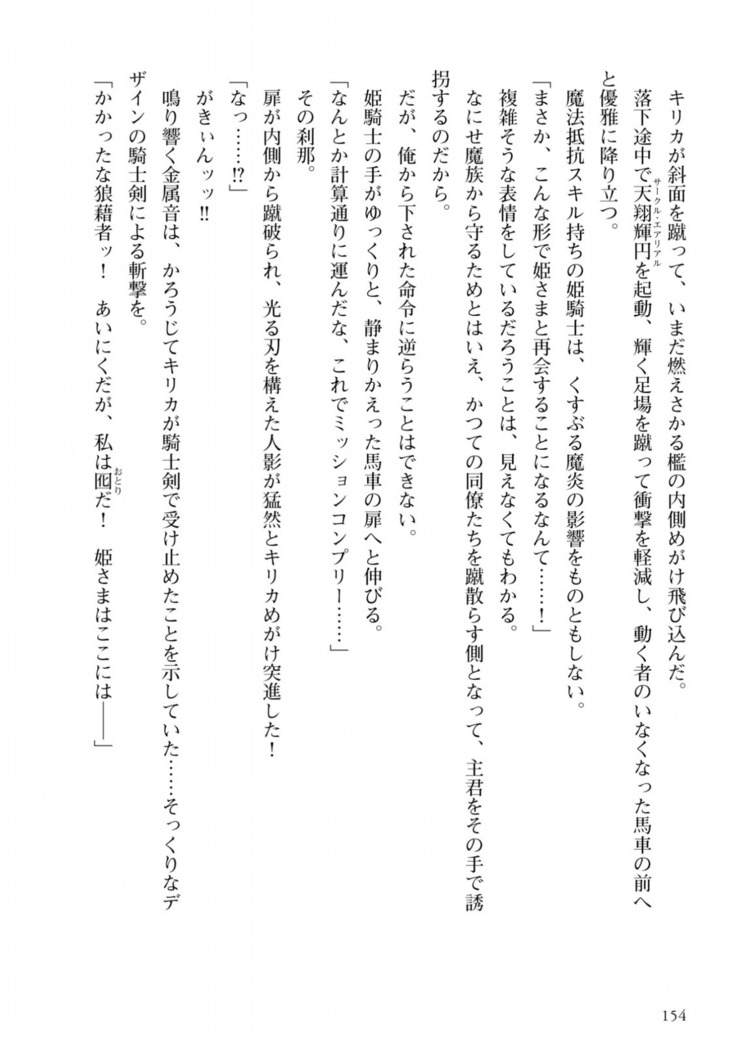 キリカが斜面を蹴って、いまだ燃えさかる檻の内側めがけ飛び込んだ。
落下途中で天翔輝円を起動、輝く足場を蹴って衝撃を軽減し、動く者のいなくなった馬車の前へ
サークル・エアリアル
と優雅に降り立つ。
魔法抵抗スキル持ちの姫騎士は、くすぶる魔炎の影響をものともしない。
「まさか、こんな形で姫さまと再会することになるなんて……！」
複雑そうな表情をしているだろうことは、見えなくてもわかる。
なにせ魔族から守るためとはいえ、かつての同僚たちを蹴散らす側となって、主君をその手で誘
拐するのだから。
だが、俺から下された命令に逆らうことはできない。
姫騎士の手がゆっくりと、静まりかえった馬車の扉へと伸びる。
「なんとか計算通りに運んだな、これでミッションコンプリー……」
その刹那。
扉が内側から蹴破られ、光る刃を構えた人影が猛然とキリカめがけ突進した！
「なっ……⁉」
がきぃんッッ‼
鳴り響く金属音は、かろうじてキリカが騎士剣で受け止めたことを示していた……そっくりなデ
ザインの騎士剣による斬撃を。
「かかったな狼藉者ッ！　あいにくだが、私は囮だ！　姫さまはここには――」
おとり
154